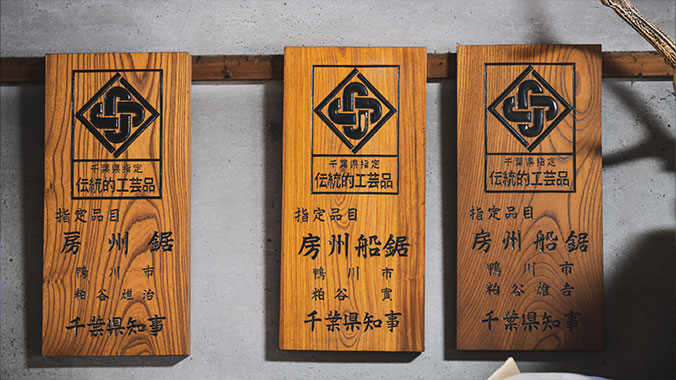 千葉県指定
伝統的工芸品
指定品目
房州鋸
鴨川市
粕谷雄治
千葉県知事
千葉県指定
伝統的工芸品
指定品目
房州船鋸
鴨川市
粕谷實
千葉県知事
千葉県指定
伝統的工芸品
指定品目
房州船鋸
鴨川市
粕谷雄吉
千葉県知事